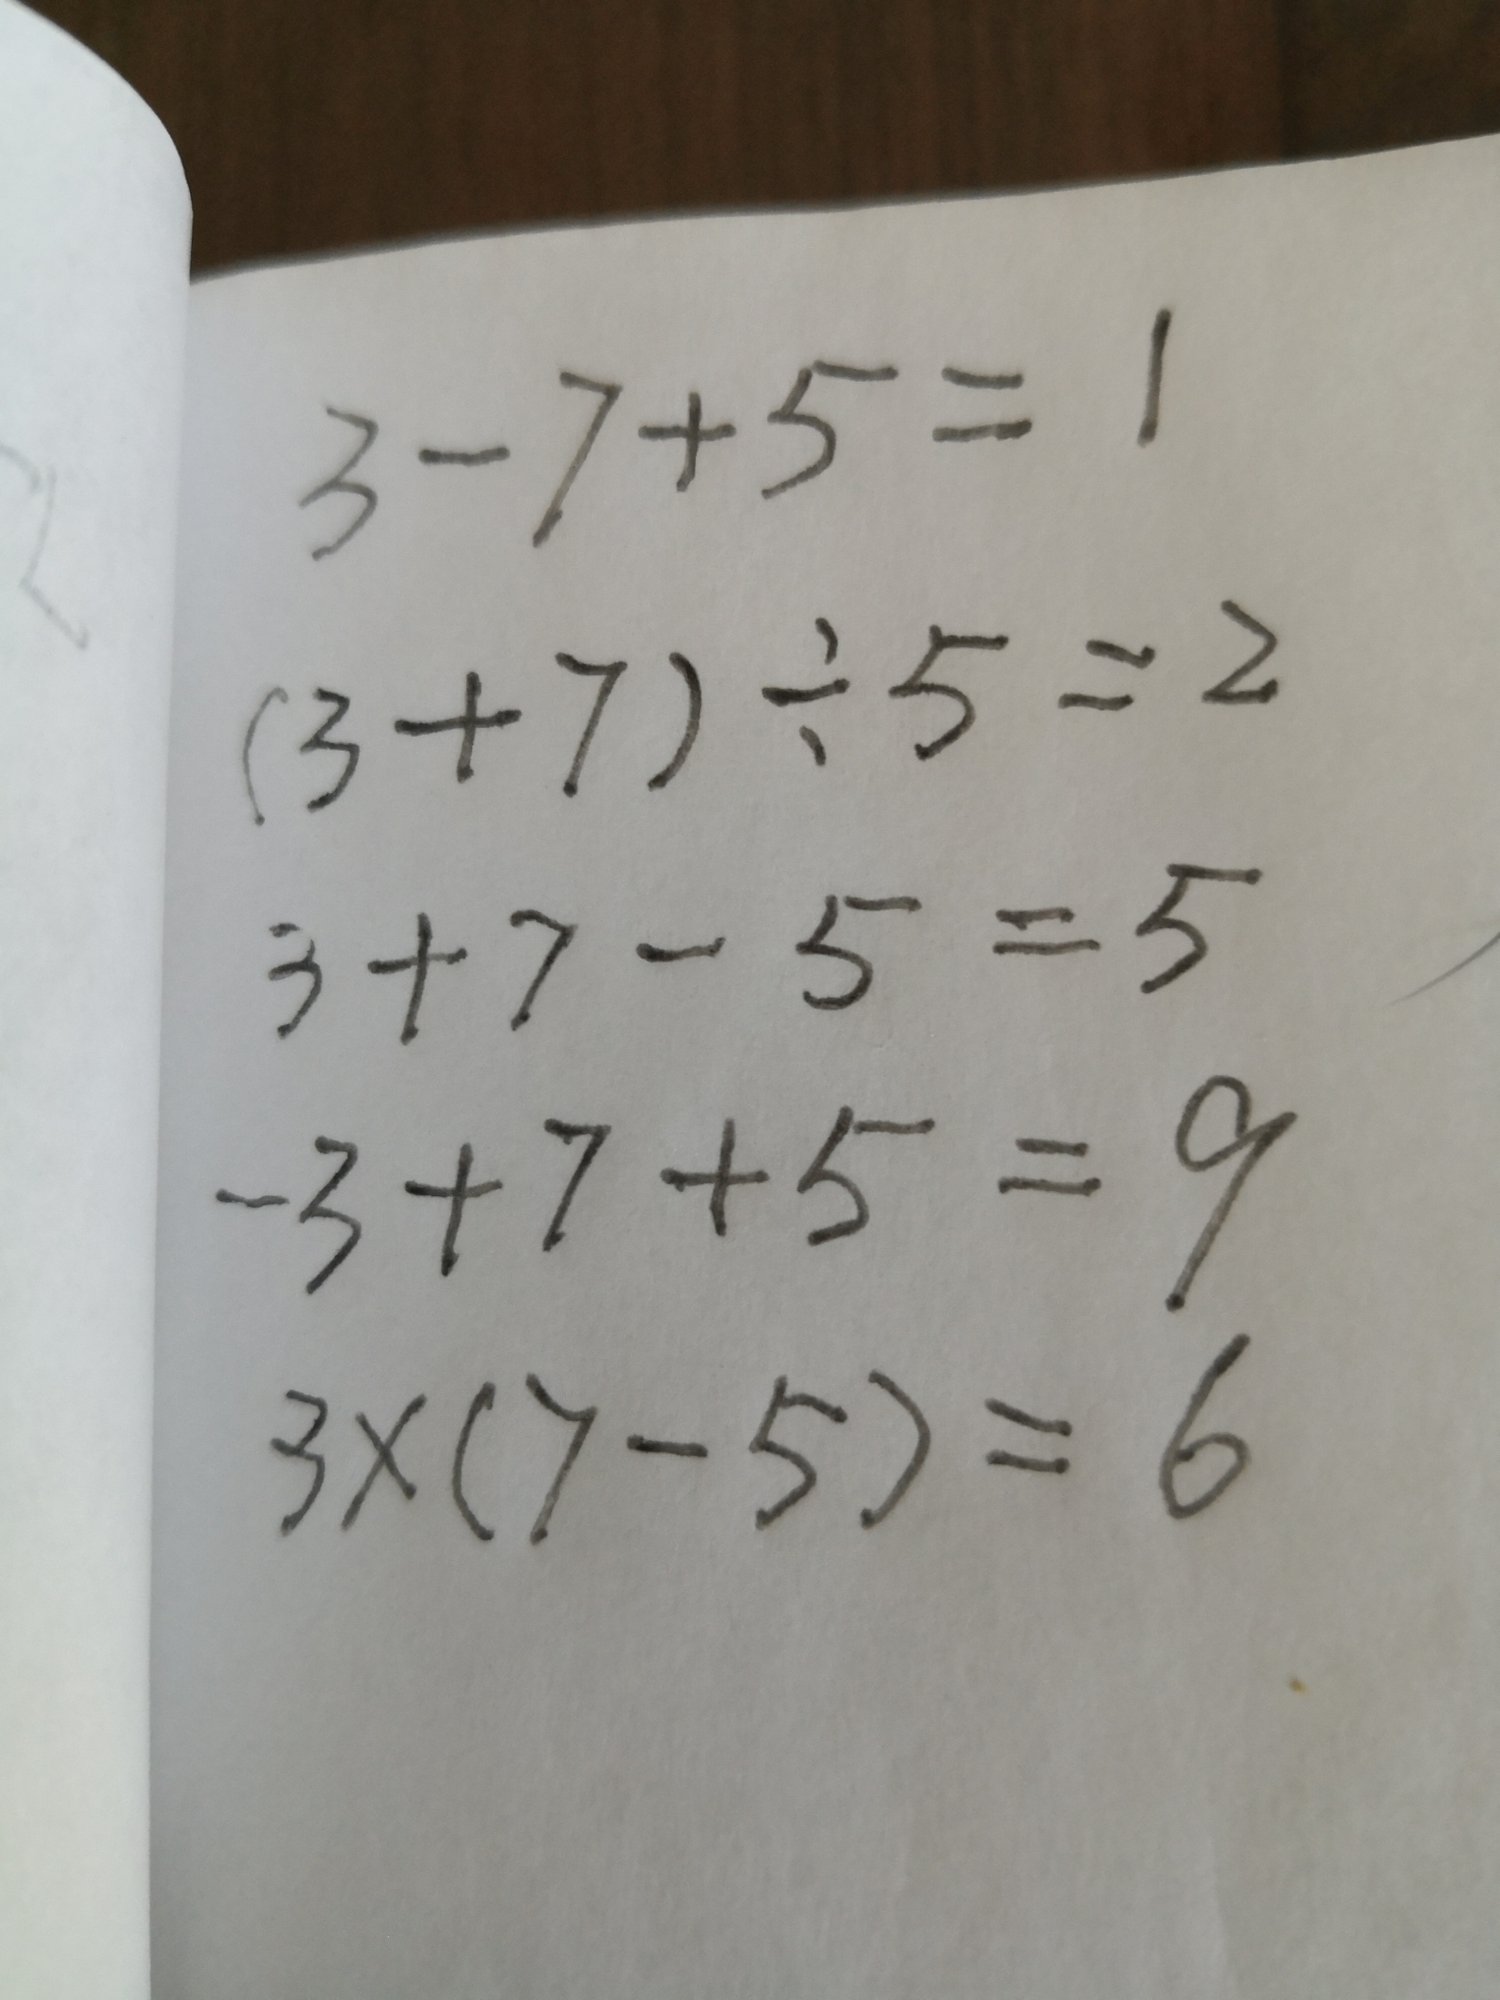 3-7+5=1
(3+7)÷5=2
3+7-5=5
-3+7+5=9
3×(7-5)=6